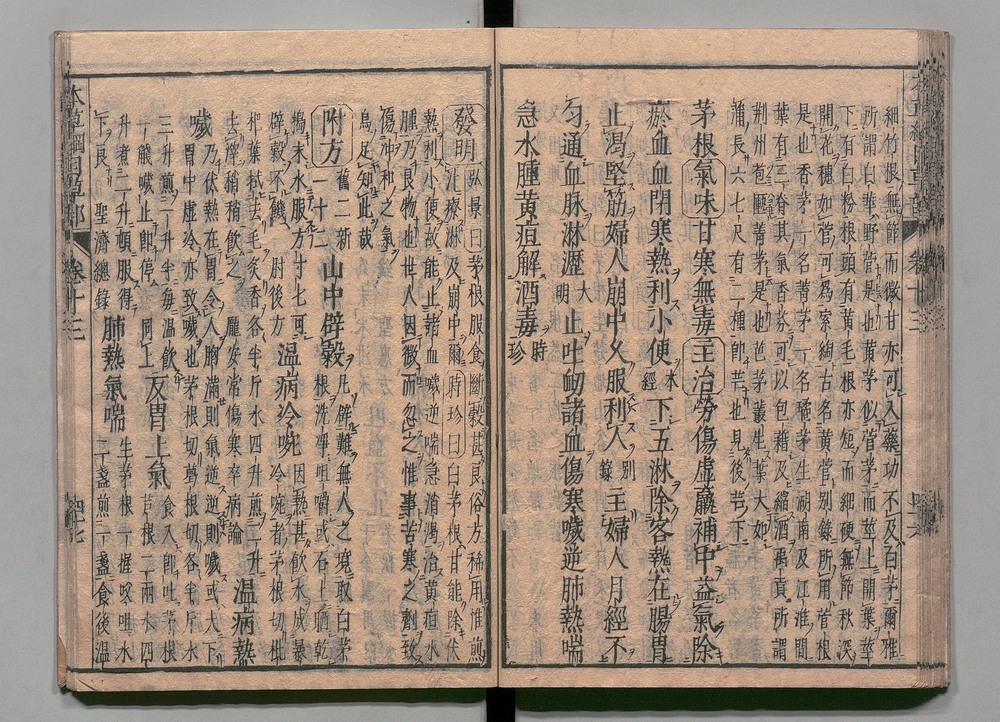 細竹根無節而微甘亦可入藥功不及白茅爾雅
所謂白華野菅是也黃茅似菅茅而莖上開葉莖
下有白粉根頭有黃毛根亦短而細硬無節秋深
開花穗如菅可爲索綯古名黃菅別錄所用菅根
是也香茅一名菁茅一名璚茅生湖南及江淮間
葉有三脊其氣香芬可以包藉及縮酒禹貢所謂
荆州苞匭菁茅是也芭茅叢生葉大如
蒲長六七尺有二種即芒也見後芒下
茅根氣味甘寒無毒主治勞傷虛羸補中益氣除
瘀血血閉寒熱利小便本經下五淋除客熱在腸胃
止渴堅筋婦人崩中久服利人別錄主婦人月經不
勻通血脉淋瀝大明止吐衄諸血傷寒噦逆肺熱喘
急水腫黃疸解酒毒時珍
發明弘景曰茅根服食斷穀甚良俗方稀用惟煎
汁療淋及崩中爾時珍曰白茅根甘能除伏
熱利小便故能止諸血噦逆喘急消渴治黃疸水
腫乃良物也世人因微而忽之惟事苦寒之劑致
傷冲和之氣
烏足知此哉
附方舊二新一十二山中辟穀凡辟難無人之境取白茅
根洗淨咀嚼或石上晒乾
搗末水服方寸匕可
辟穀不饑肘後方溫病冷啘因熱甚飲水成暴
冷啘者茅根切枇
杷葉拭去毛炙香各半斤水四升煎二升
去滓稍稍飲之龐安常傷寒卒病論溫病熱
噦乃伏熱在胃令人胸滿則氣逆逆則噦或大下
胃中虛冷亦致噦也茅根切葛根切各半斤水
三升煎一升半每溫飲
一盞噦止即停同上反胃上氣食入即吐茅根
蘆根二兩水四
升煮二升頓服得
下良聖濟總錄肺熱氣喘生茅根一握㕮咀水
二盞煎一盞食後溫
本草綱目草部 卷十三 四十七